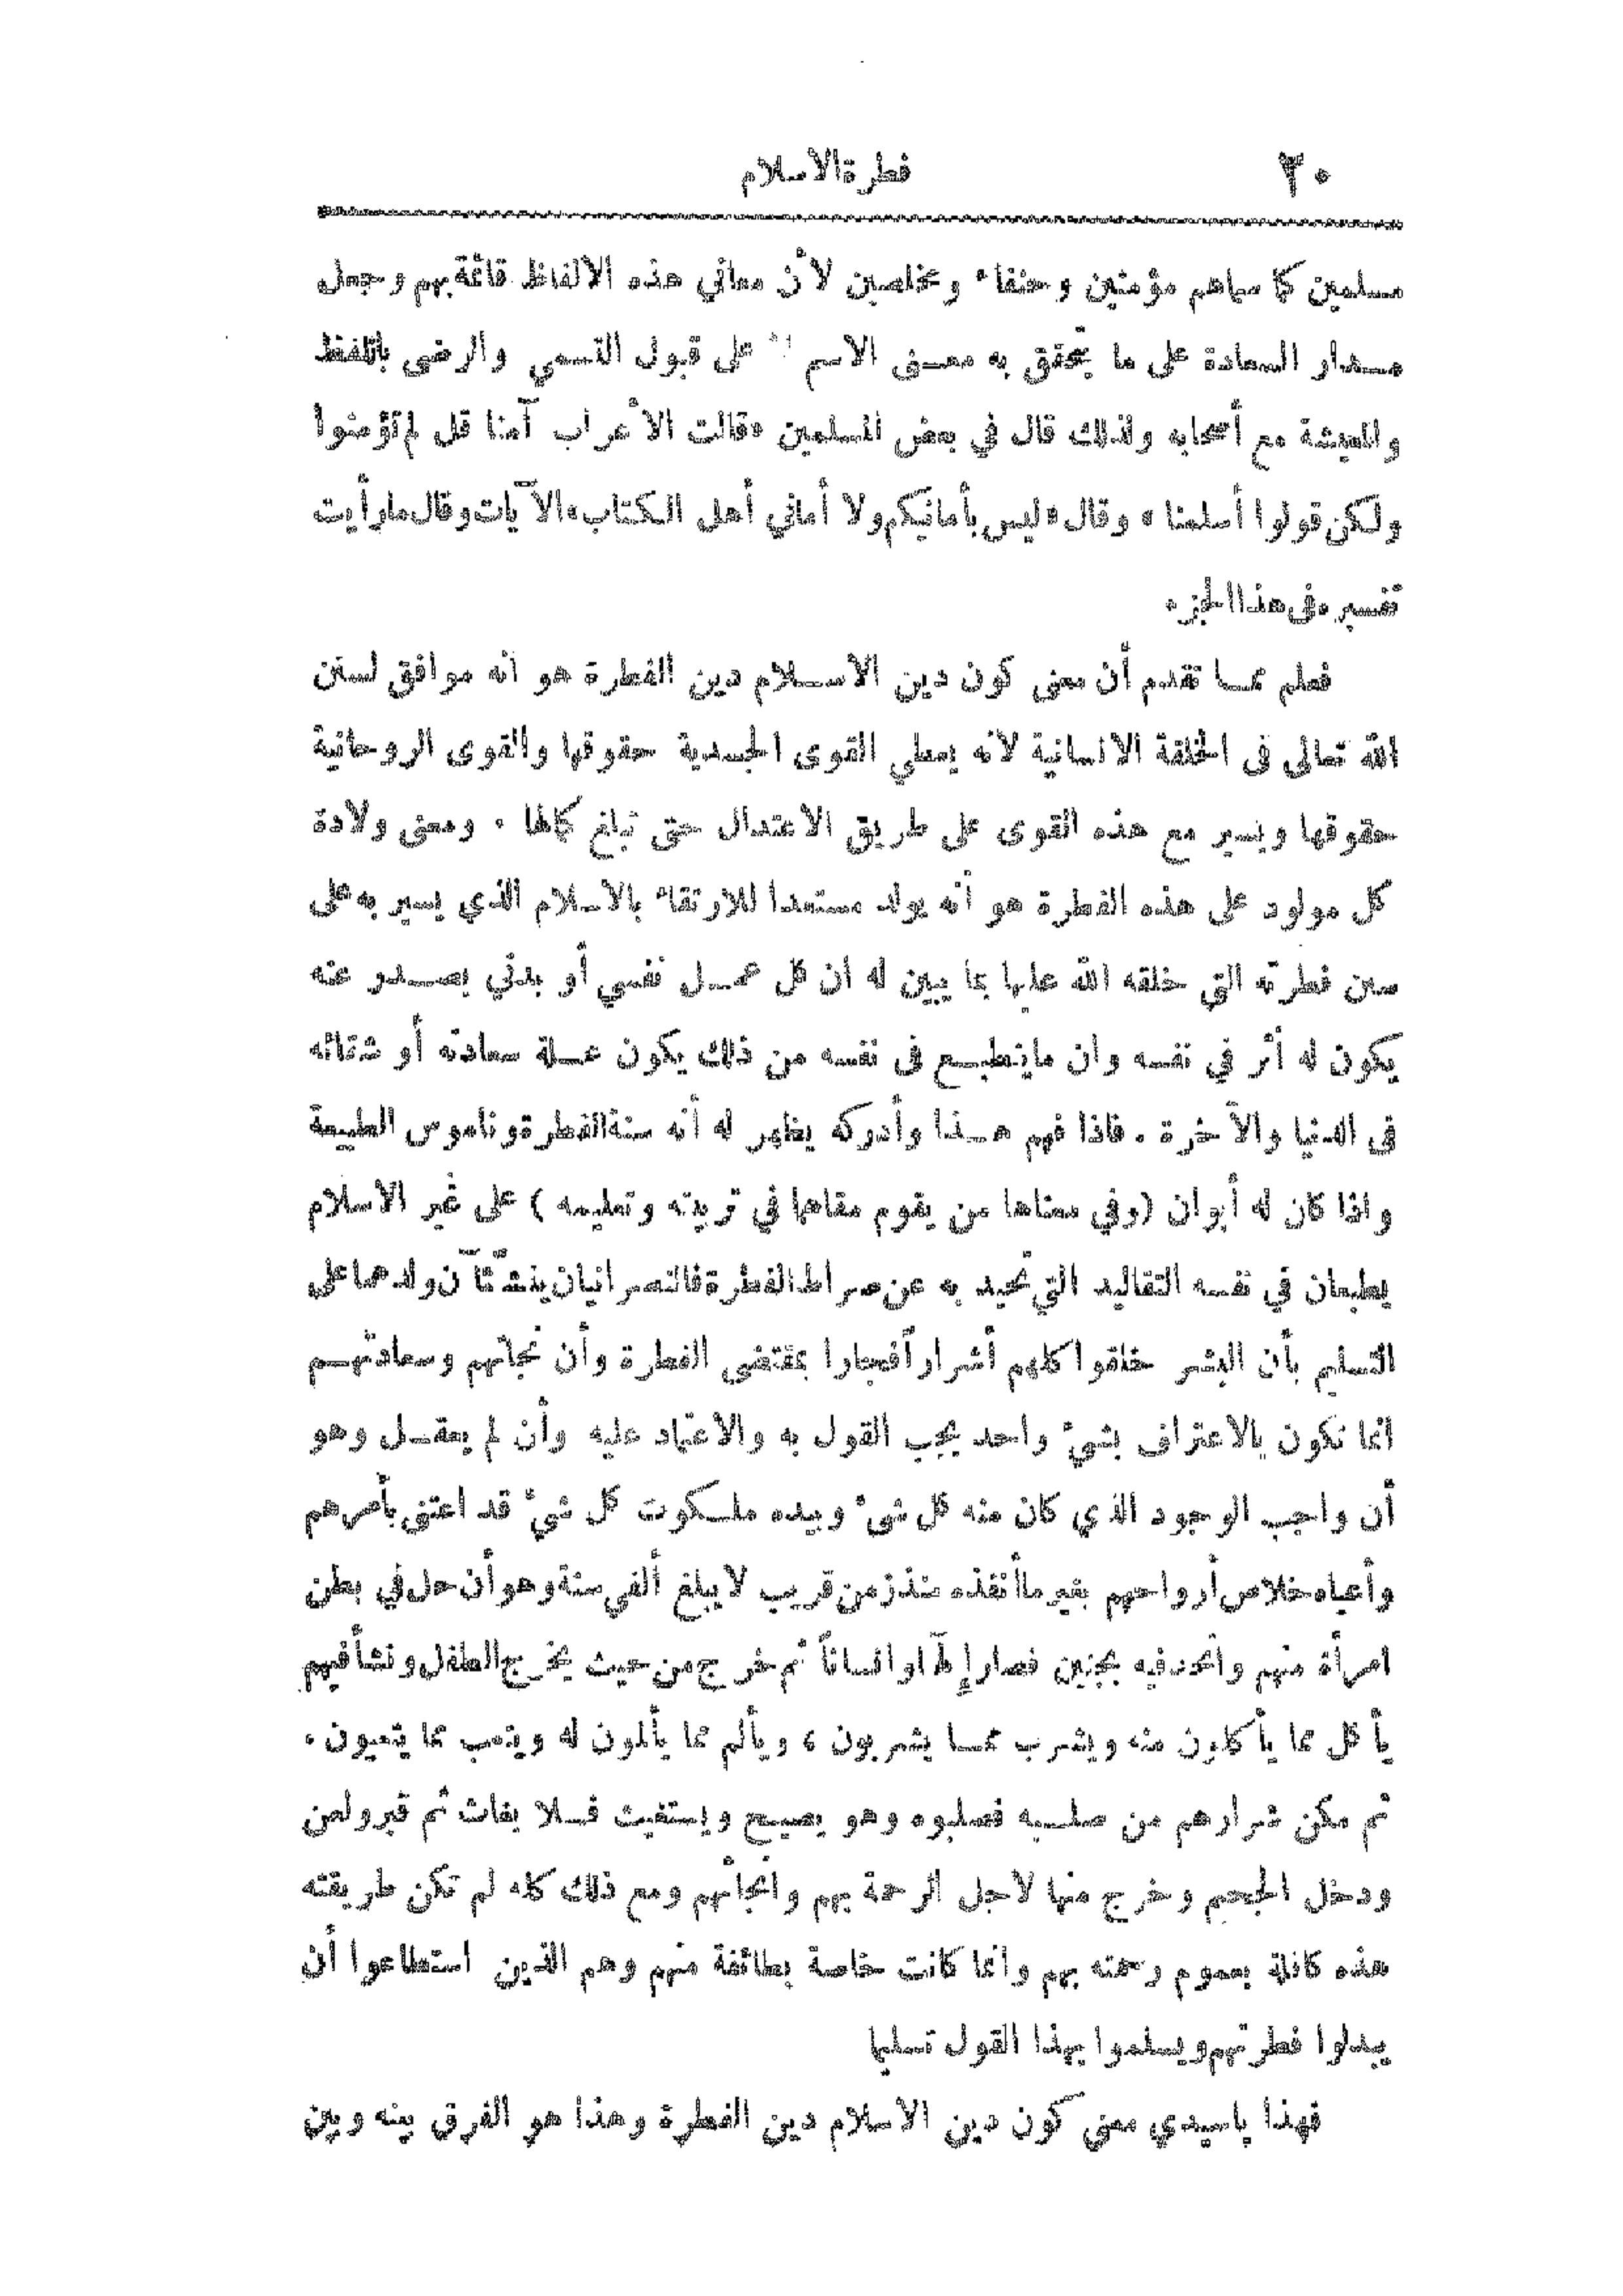 ٣٠ فطرة الاسلام
مسلمين كما سماهم مؤمنين وحنفاء ومخلصين لأن معاني هذه الالفاظ قائمة بهم وجعل
مدار السعادة على ما يحقق به معنى الاسم لا على قبول التسمي والرضى باللفظ
والمعيشة مع أصحابه ولذلك قال في بعض المسلمين «قالت الأعراب آمنا قل لم تؤمنوا
ولكن قولوا أسلمنا» وقال «ليس بأمانيكم ولا أماني أهل الكتاب» الآيات وقال ما رأيت
تفسيره فى هذا الجزء
فعلم مما تقدم أن معنى كون دين الاسلام دين الفطرة هو انه موافق لسنن
الله تعالى فى الخلقة الانسانية لانه يعطي القوى الجسدية حقوقها والقوى الروحانية
حقوقها ويسير مع هذه القوى على طريق الاعتدال حتى تبلغ كمالها . ومعنى ولادة
كل مولود على هذه الفطرة هو أنه يولد مستعدا للارتقاء بالاسلام الذي يسير به على
سنن فطرته التي خلقه الله عليها بما يبين له أن كل عمل نفسي أو بدني يصدر عنه
يكون له أثر في نفسه وان ما ينطبع فى نفسه من ذلك يكون علة سعادته أو شقائه
فى الدنيا والآخرة . فاذا فهم هذا وأدركه يظهر له أنه سنة الفطرة وناموس الطبيعة
واذا كان له أبوان (وفي معناها من يقوم مقاهما في تربيته وتعليمه) على غير الاسلام
يطبعان في نفسه التقاليد التي تحيد به عن صراط الفطرة فالنصرانيان ينشئآن ولدهما على
التسليم بأن البشر خلقوا كلهم أشراراً فجارا بمقتضى الفطرة وأن نجاتهم وسعادتهم
انما تكون بالاعتراف بشيء واحد يجب القول به والاعتماد عليه وأن لم يعقل وهو
أن واجب الوجود الذي كان منه كل شئ وبيده ملكوت كل شيء قد اعتنى بأمرهم
وأعياه خلاص أرواحهم بغير ما أنفذه منذ زمن قريب لا يبلغ ألفي سنة وهو أن حل في بطن
امرأة منهم واتحد فيه بجنين فصار إلهاً وانساناً ثم خرج من حيث يخرج الطفل ونشأ فيهم
يأكل مما يأكلون منه ويشرب مما يشربون ، ويألم مما يألمون له ويتعب مما يتعبون .
ثم مكن شرارهم من صلبه فصلبوه وهو يصيح ويستغيث فلا يغاث ثم قبر ولعن
ودخل الجحيم وخرج منها لاجل الرحمة بهم وانجائهم ومع ذلك كله لم تكن طريقته
هذه كافلة بعموم رحمته بهم وانما كانت خاصة بطائفة منهم وهم الذين استطاعوا أن
يبدلوا فطرتهم ويسلموا بهذا القول تسليما
فهذا ياسيدي معنى كون دين الاسلام دين الفطرة وهذا هو الفرق بينه وبين